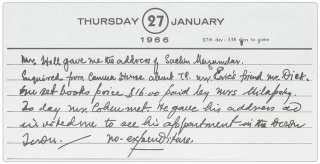 THURSDAY 27 JANUARY
1966 27th day - 338 days to come
Mrs Holl gave me the address of Sachin Majumdar.
Enquired from Camera Store about T.P. Mr. Eric's friend Mr. Dick.
One set books price $16.00 paid by Mrs
To day Mr. Cohen met. He gave his address and
invited me to see his appartment in the Devon
no-expenditure.